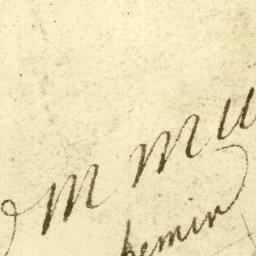 M Mu
hemin